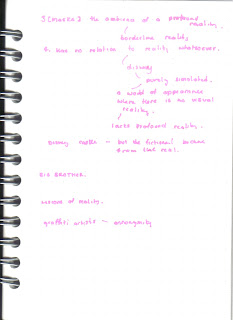 the ambience of a profound reality.
borderline reality
6. bear no relation to reality whatsoever.
disney
purely simulated.
a world of appearance
where there is no usual
reality.
lacks profound reality.
Disney castle - but the fictional became
from that real.
BIG BROTHER.
versions of reality.
graffiti artists - anonymity